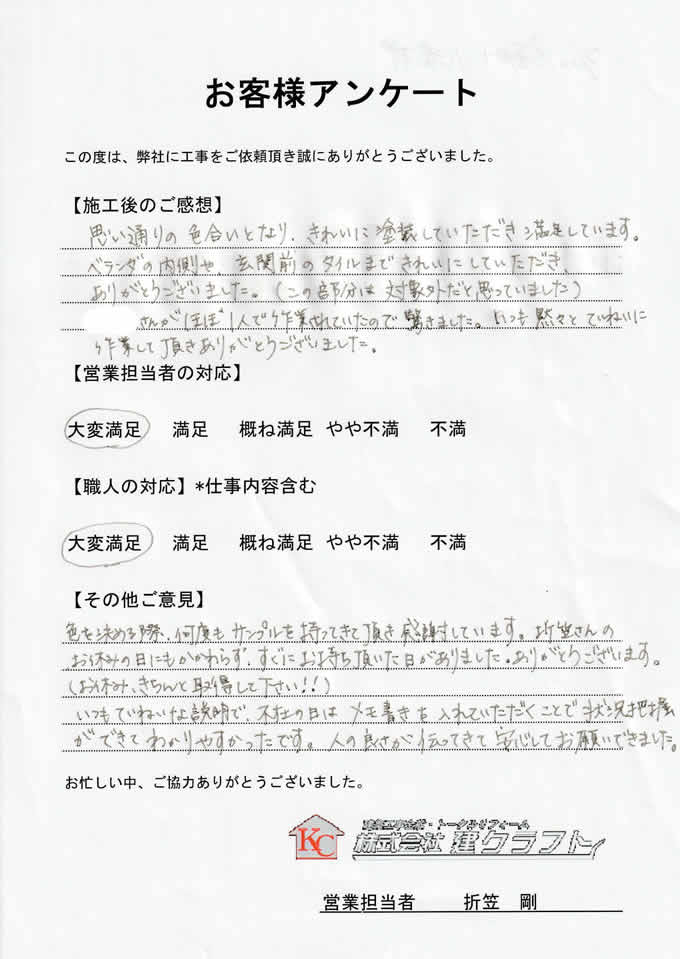 お客様アンケート
この度は、弊社に工事をご依頼頂き誠にありがとうございました。
【施工後のご感想】
思い通りの色合いとなり、きれいに塗装していただき満足しています。
ベランダの内側や、玄関前のタイルまできれいにしていただき、
ありがとうございました。(この部分は対象外だと思っていました)
さんがほぼ1人で作業されていたので驚きました。いつも黙々とていねいに
作業して頂きありがとうございました。
【営業担当者の対応】
大変満足 満足 概ね満足 やや不満 不満
【職人の対応】*仕事内容含む
大変満足 満足 概ね満足 やや不満 不満
【その他ご意見】
色を決める際、何度もサンプルを持ってきて頂き感謝しています。折笠さんの
お休みの日にもかかわらず、すぐにお持ち頂いた日がありました。ありがとうございます。
(お休み、きちんと取得して下さい!!)
いつもていねいな説明で、不在の日はメモ書きを入れていただくことで状況把握
ができてわかりやすかったです。人の良さが伝ってきて安心してお願いできました。
お忙しい中、ご協力ありがとうございました。
KC
・トータルリフォーム
株式会社 建クラフト
営業担当者 折笠 剛